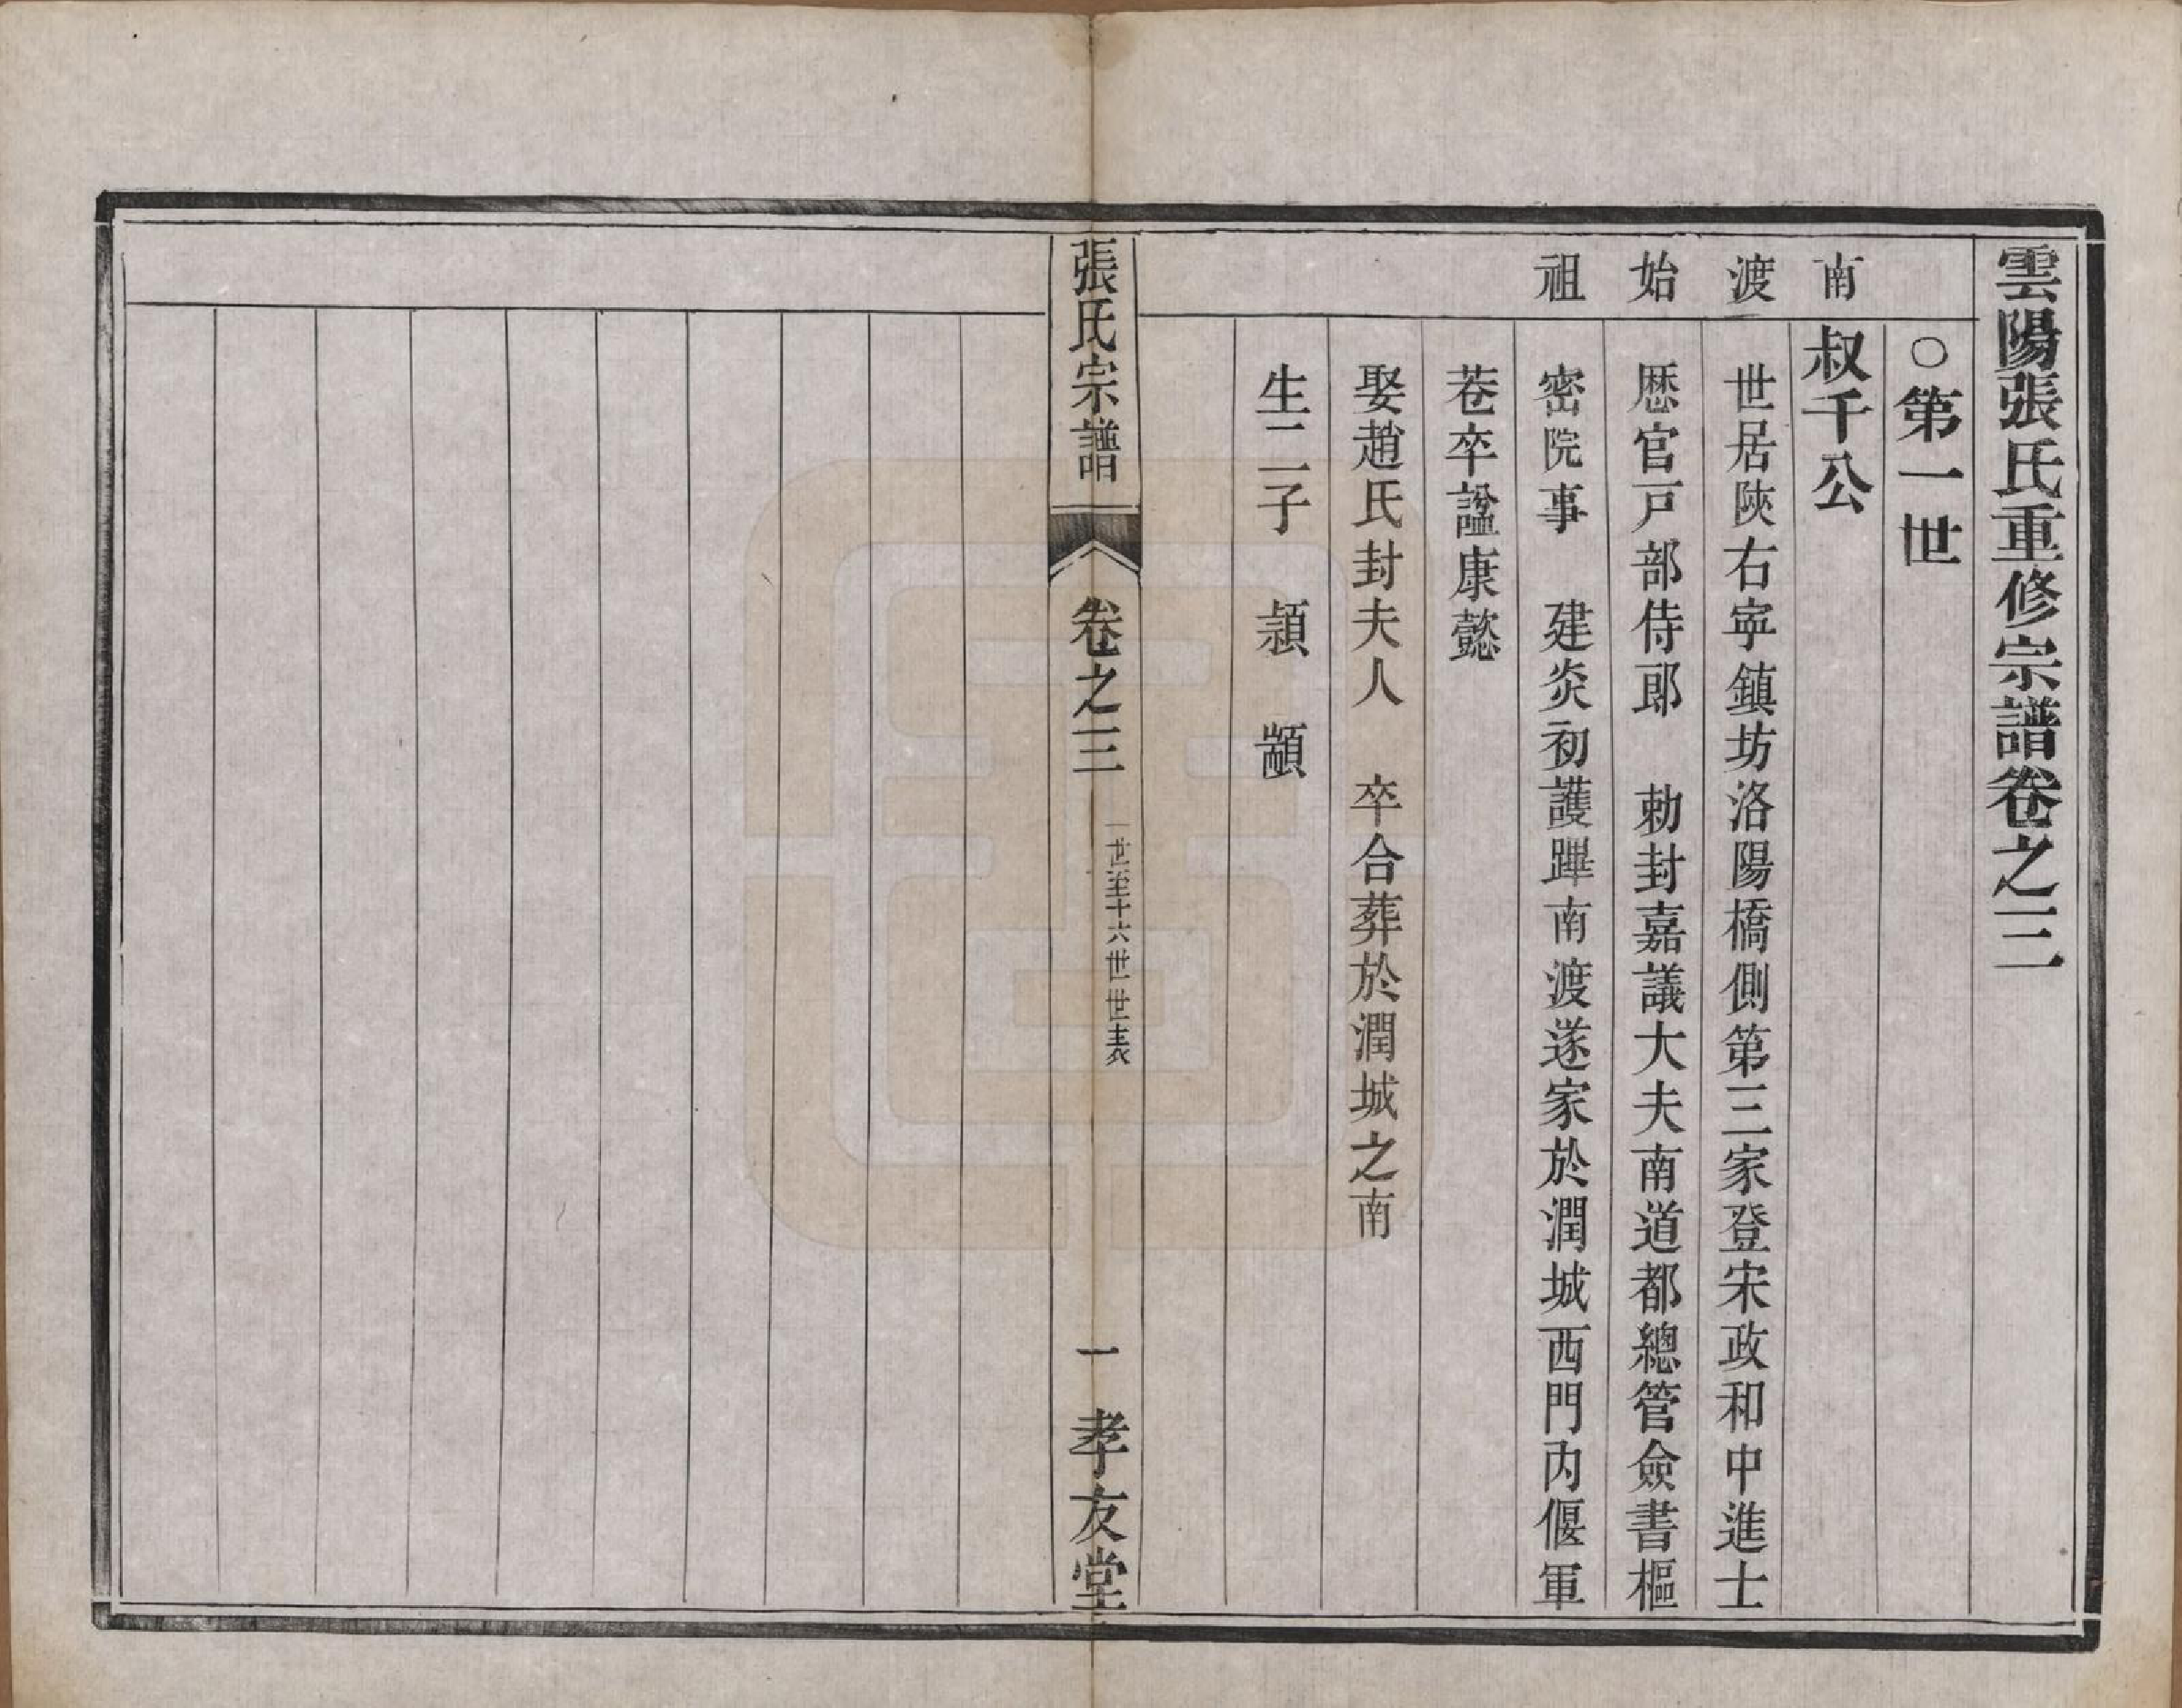 雲陽張氏重修宗譜卷之三
○第一世
南渡始祖
叔千公
世居陝右寧鎮坊洛陽橋側第三家登宋政和中進士
歷官戸部侍郎　勅封嘉議大夫南道都總管僉書樞
密院事　建炎初護蹕南渡遂家於潤城西門內偃軍
巷卒諡康懿
娶趙氏封夫人　卒合葬於潤城之南
生二子　頴　顓
張氏宗譜
卷之三
一世至十六世世表
一
孝友堂